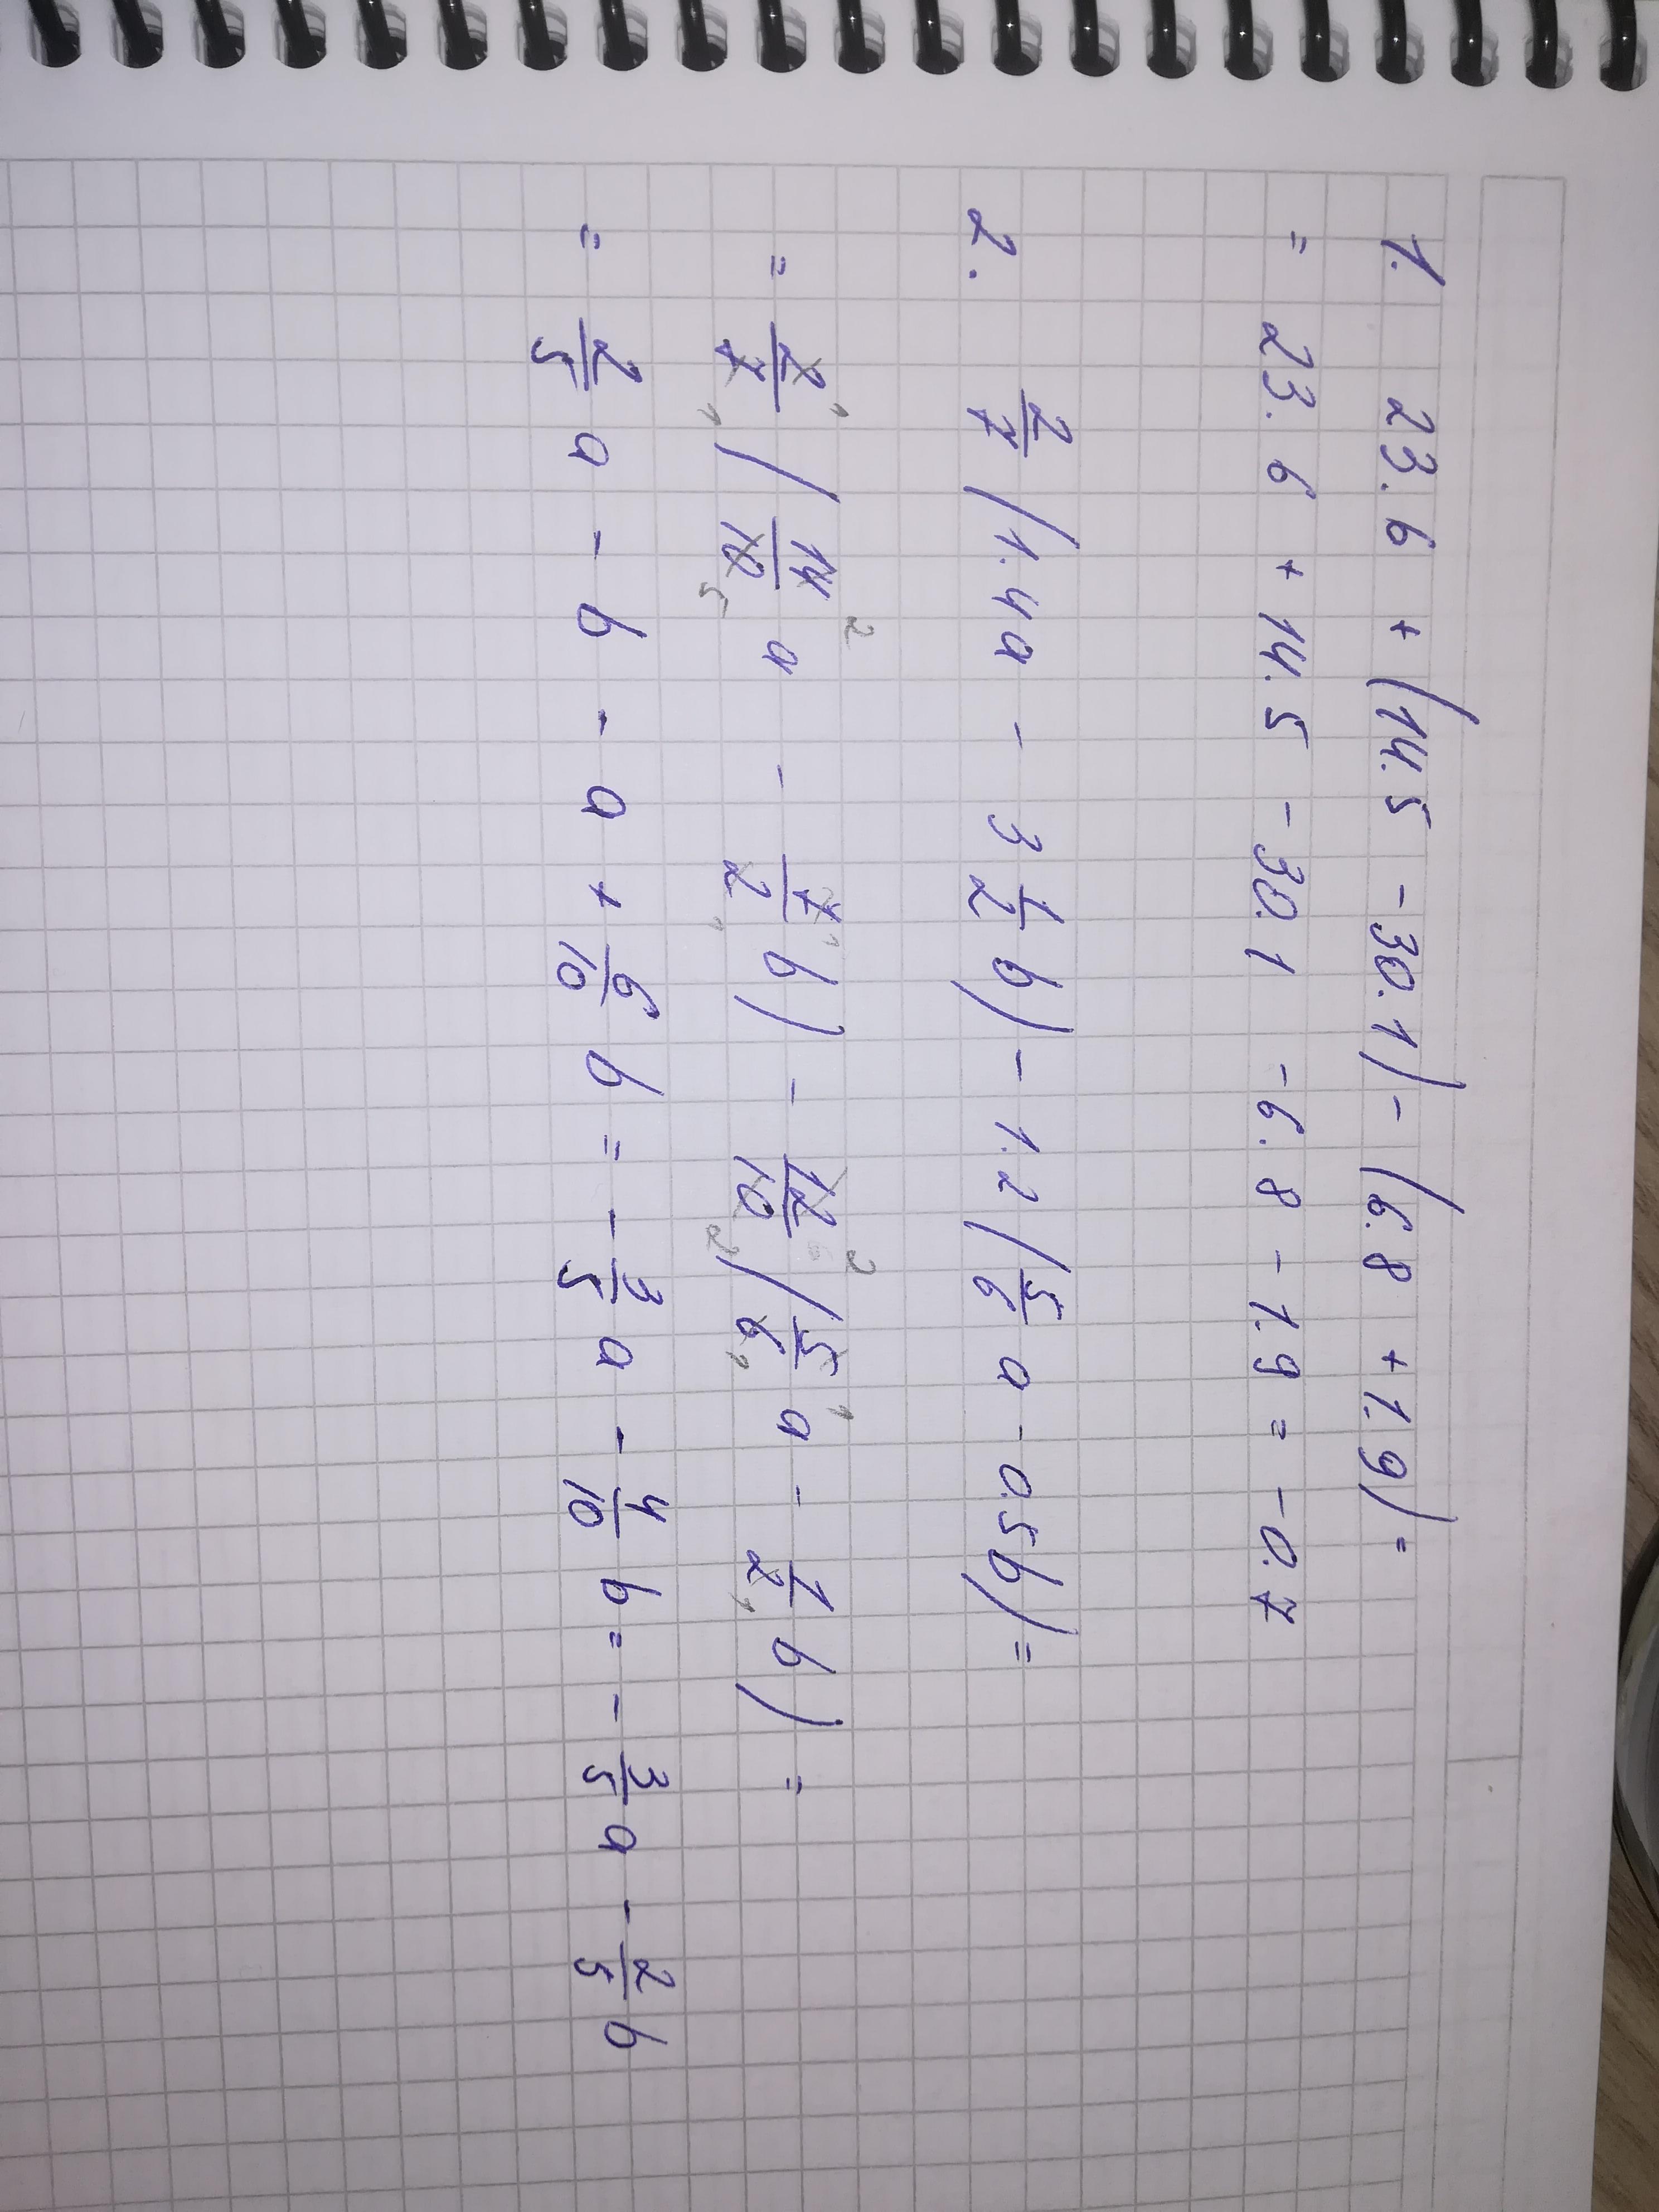 1. 23.6 + (14.5 - 30.1) - (6.8 + 1.9) =
= 23.6 + 14.5 - 30.1 - 6.8 - 1.9 = -0.7
2. 2/7 (1.4a - 3 1/2 b) - 1.2 (5/6 a - 0.5b) =
= 2/7 (14/10 a - 7/2 b) - 12/10 (5/6 a - 1/2 b) =
= 2/5 a - b - a + 6/10 b = - 3/5 a - 4/10 b = - 3/5 a - 2/5 b